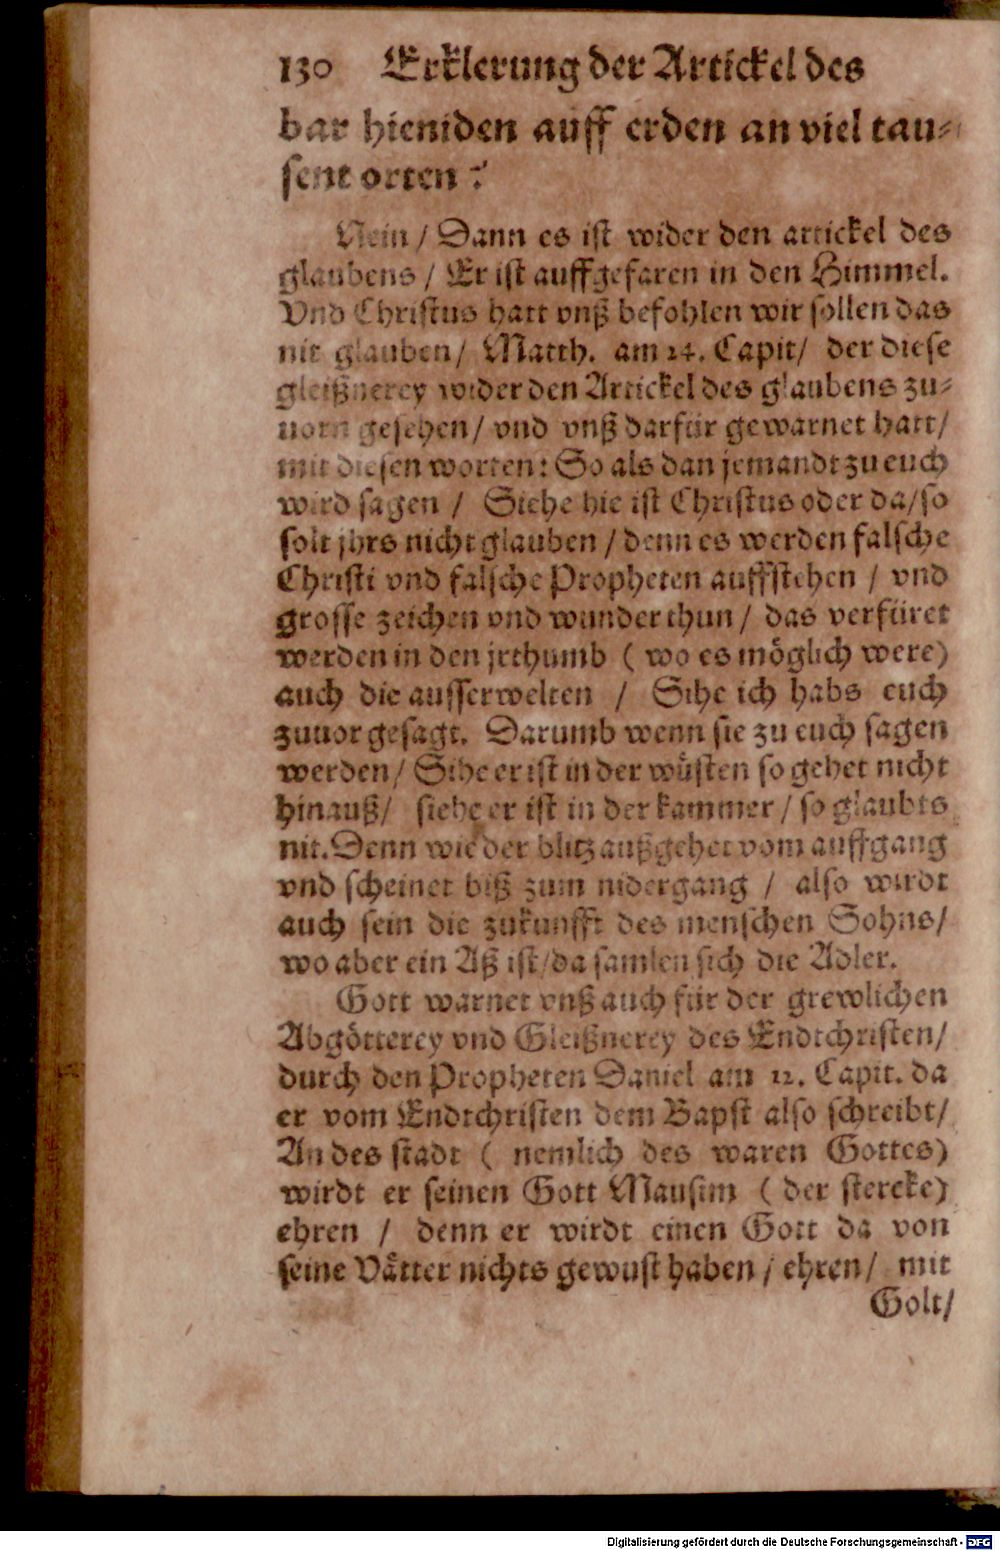 130 Erklerung der Artickel des
bar hieniden auff erden an viel tau⸗
sent orten?
Nein / Dann es ist wider den artickel des
glaubens / Er ist auffgefaren in den Himmel.
Vnd Christus hatt vnß befohlen wir sollen das
nit glauben / Matth. am 24. Capit / der diese
gleißnerey wider den Artickel des glaubens zu⸗
uorn gesehen / vnd vnß darfür gewarnet hatt /
mit diesen worten: So als dan jemandt zu euch
wird sagen / Siehe hie ist Christus oder da / so
solt jhrs nicht glauben / denn es werden falsche
Christi vnd falsche Propheten auffstehen / vnd
grosse zeichen vnd wunder thun / das verfüret
werden in den jrthumb ( wo es möglich were)
auch die ausserwelten / Sihe ich habs euch
zuuor gesagt. Darumb wenn sie zu euch sagen
werden / Sihe er ist in der wüsten so gehet nicht
hinauß / siehe er ist in der kammer / so glaubts
nit. Denn wie der blitz außgehet vom auffgang
vnd scheinet biß zum nidergang / also wirdt
auch sein die zukunfft des menschen Sohns /
wo aber ein Aß ist / da samlen sich die Adler.
Gott warnet vnß auch für der grewlichen
Abgötterey vnd Gleißnerey des Endtchristen /
durch den Propheten Daniel am 12. Capit. da
er vom Endtchristen dem Bapst also schreibt /
An des stadt ( nemlich des waren Gottes)
wirdt er seinen Gott Mausim ( der stercke)
ehren / denn er wirdt einen Gott da von
seine Vätter nichts gewust haben / ehren / mit
Golt /
Digitalisierung gefördert durch die Deutsche Forschungsgemeinschaft - DFG